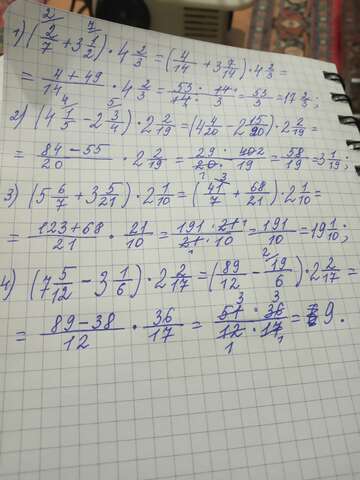 2 7
1) (2/7 + 3 1/2) · 4 2/3 = (4/14 + 3 7/14) · 4 2/3 =
= (4 + 49)/14 · 4 2/3 = 53/14 · 14/3 = 53/3 = 17 2/3;
4 5
2) (4 1/5 - 2 3/4) · 2 2/19 = (4 4/20 - 2 15/20) · 2 2/19 =
= (84 - 55)/20 · 2 2/19 = (29 · 40 2)/(20 1 · 19) = 58/19 = 3 1/19;
3) (5 6/7 + 3 5/21) · 2 1/10 = (41 3/7 + 68/21) · 2 1/10 =
= (123 + 68)/21 · 21/10 = (191 · 21)/(21 · 10) = 191/10 = 19 1/10;
4) (7 5/12 - 3 1/6) · 2 2/17 = (89/12 - 19 2/6) · 2 2/17 =
= (89 - 38)/12 · 36/17 = (51 3 · 36 3)/(12 1 · 17 1) = 9.